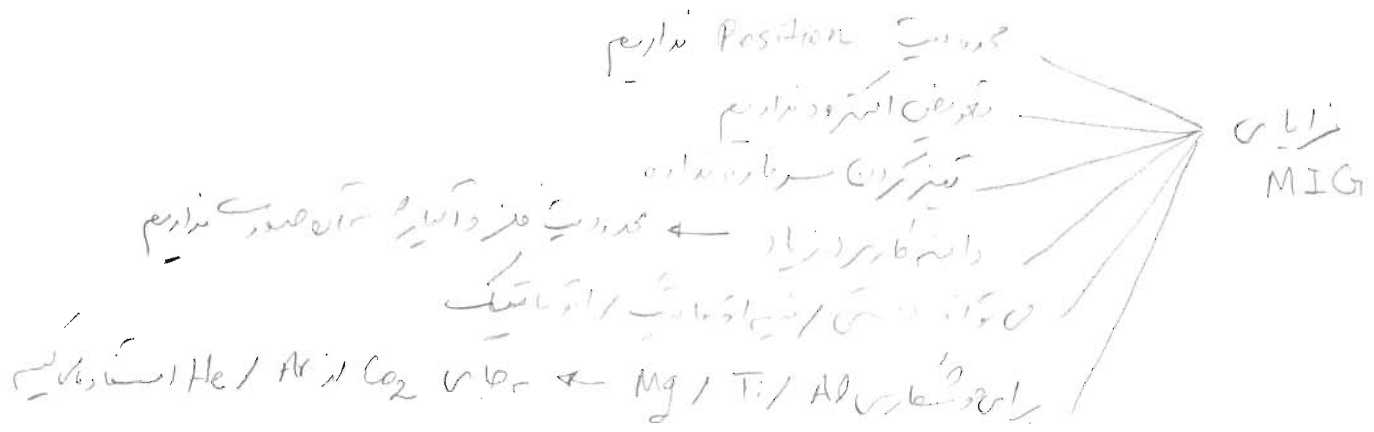 مزایای
MIG
محدودیت Position نداریم
تعویض الکترود نداریم
تمیز کردن سرباره نداریم
دامنه کاربرد زیاد ← محدودیت فلز و آلیاژ به آن صورت نداریم
می‌تواند دستی / نیمه اتوماتیک / اتوماتیک
برای جوشکاری Al / Ti / Mg ← به جای CO2 از Ar / He استفاده می‌کنیم